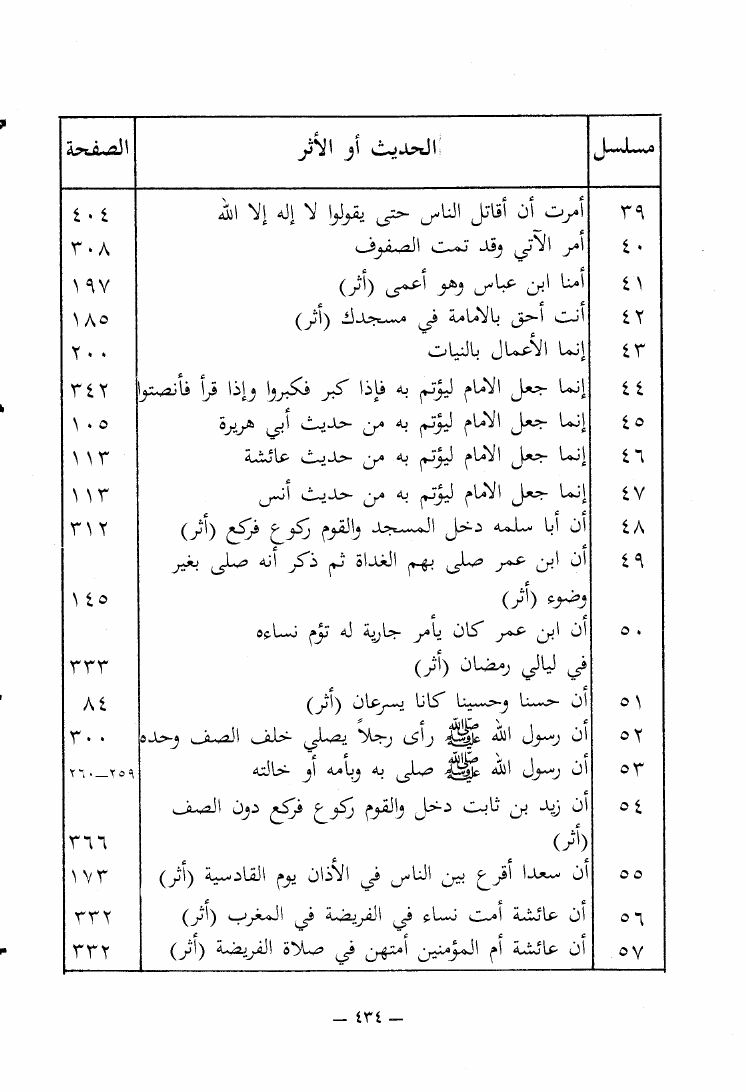 مسلسل الحديث أو الأثر الصفحة
٣٩ أمرت أن أقاتل الناس حتى يقولوا لا إله إلا الله ٤٠٤
٤٠ أمر الآتي وقد تمت الصفوف ٣٠٨
٤١ أمنا ابن عباس وهو أعمى (أثر) ١٩٧
٤٢ أنت أحق بالامامة في مسجدك (أثر) ١٨٥
٤٣ إنما الأعمال بالنيات ٢٠٠
٤٤ إنما جعل الامام ليؤتم به فإذا كبر فكبروا وإذا قرأ فأنصتوا ٣٤٢
٤٥ إنما جعل الامام ليؤتم به من حديث أبي هريرة ١٠٥
٤٦ إنما جعل الامام ليؤتم به من حديث عائشة ١١٣
٤٧ إنما جعل الامام ليؤتم به من حديث أنس ١١٣
٤٨ أن أبا سلمه دخل المسجد والقوم ركوع فركع (أثر) ٣١٢
٤٩ أن ابن عمر صلى بهم الغداة ثم ذكر أنه صلى بغير
وضوء (أثر) ١٤٥
٥٠ أن ابن عمر كان يأمر جارية له تؤم نساءه
في ليالي رمضان (أثر) ٣٣٣
٥١ أن حسنا وحسينا كانا يسرعان (أثر) ٨٤
٥٢ أن رسول الله ﷺ رأى رجلاً يصلي خلف الصف وحده ٣٠٠
٥٣ أن رسول الله ﷺ صلى به وبأمه أو خالته ٢٥٩—٢٦٠
٥٤ أن زيد بن ثابت دخل والقوم ركوع فركع دون الصف
(أثر) ٣٦٦
٥٥ أن سعدا أقرع بين الناس في الأذان يوم القادسية (أثر) ١٧٣
٥٦ أن عائشة أمت نساء في الفريضة في المغرب (أثر) ٣٣٢
٥٧ أن عائشة أم المؤمنين أمتهن في صلاة الفريضة (أثر) ٣٣٢
— ٤٣٤ —